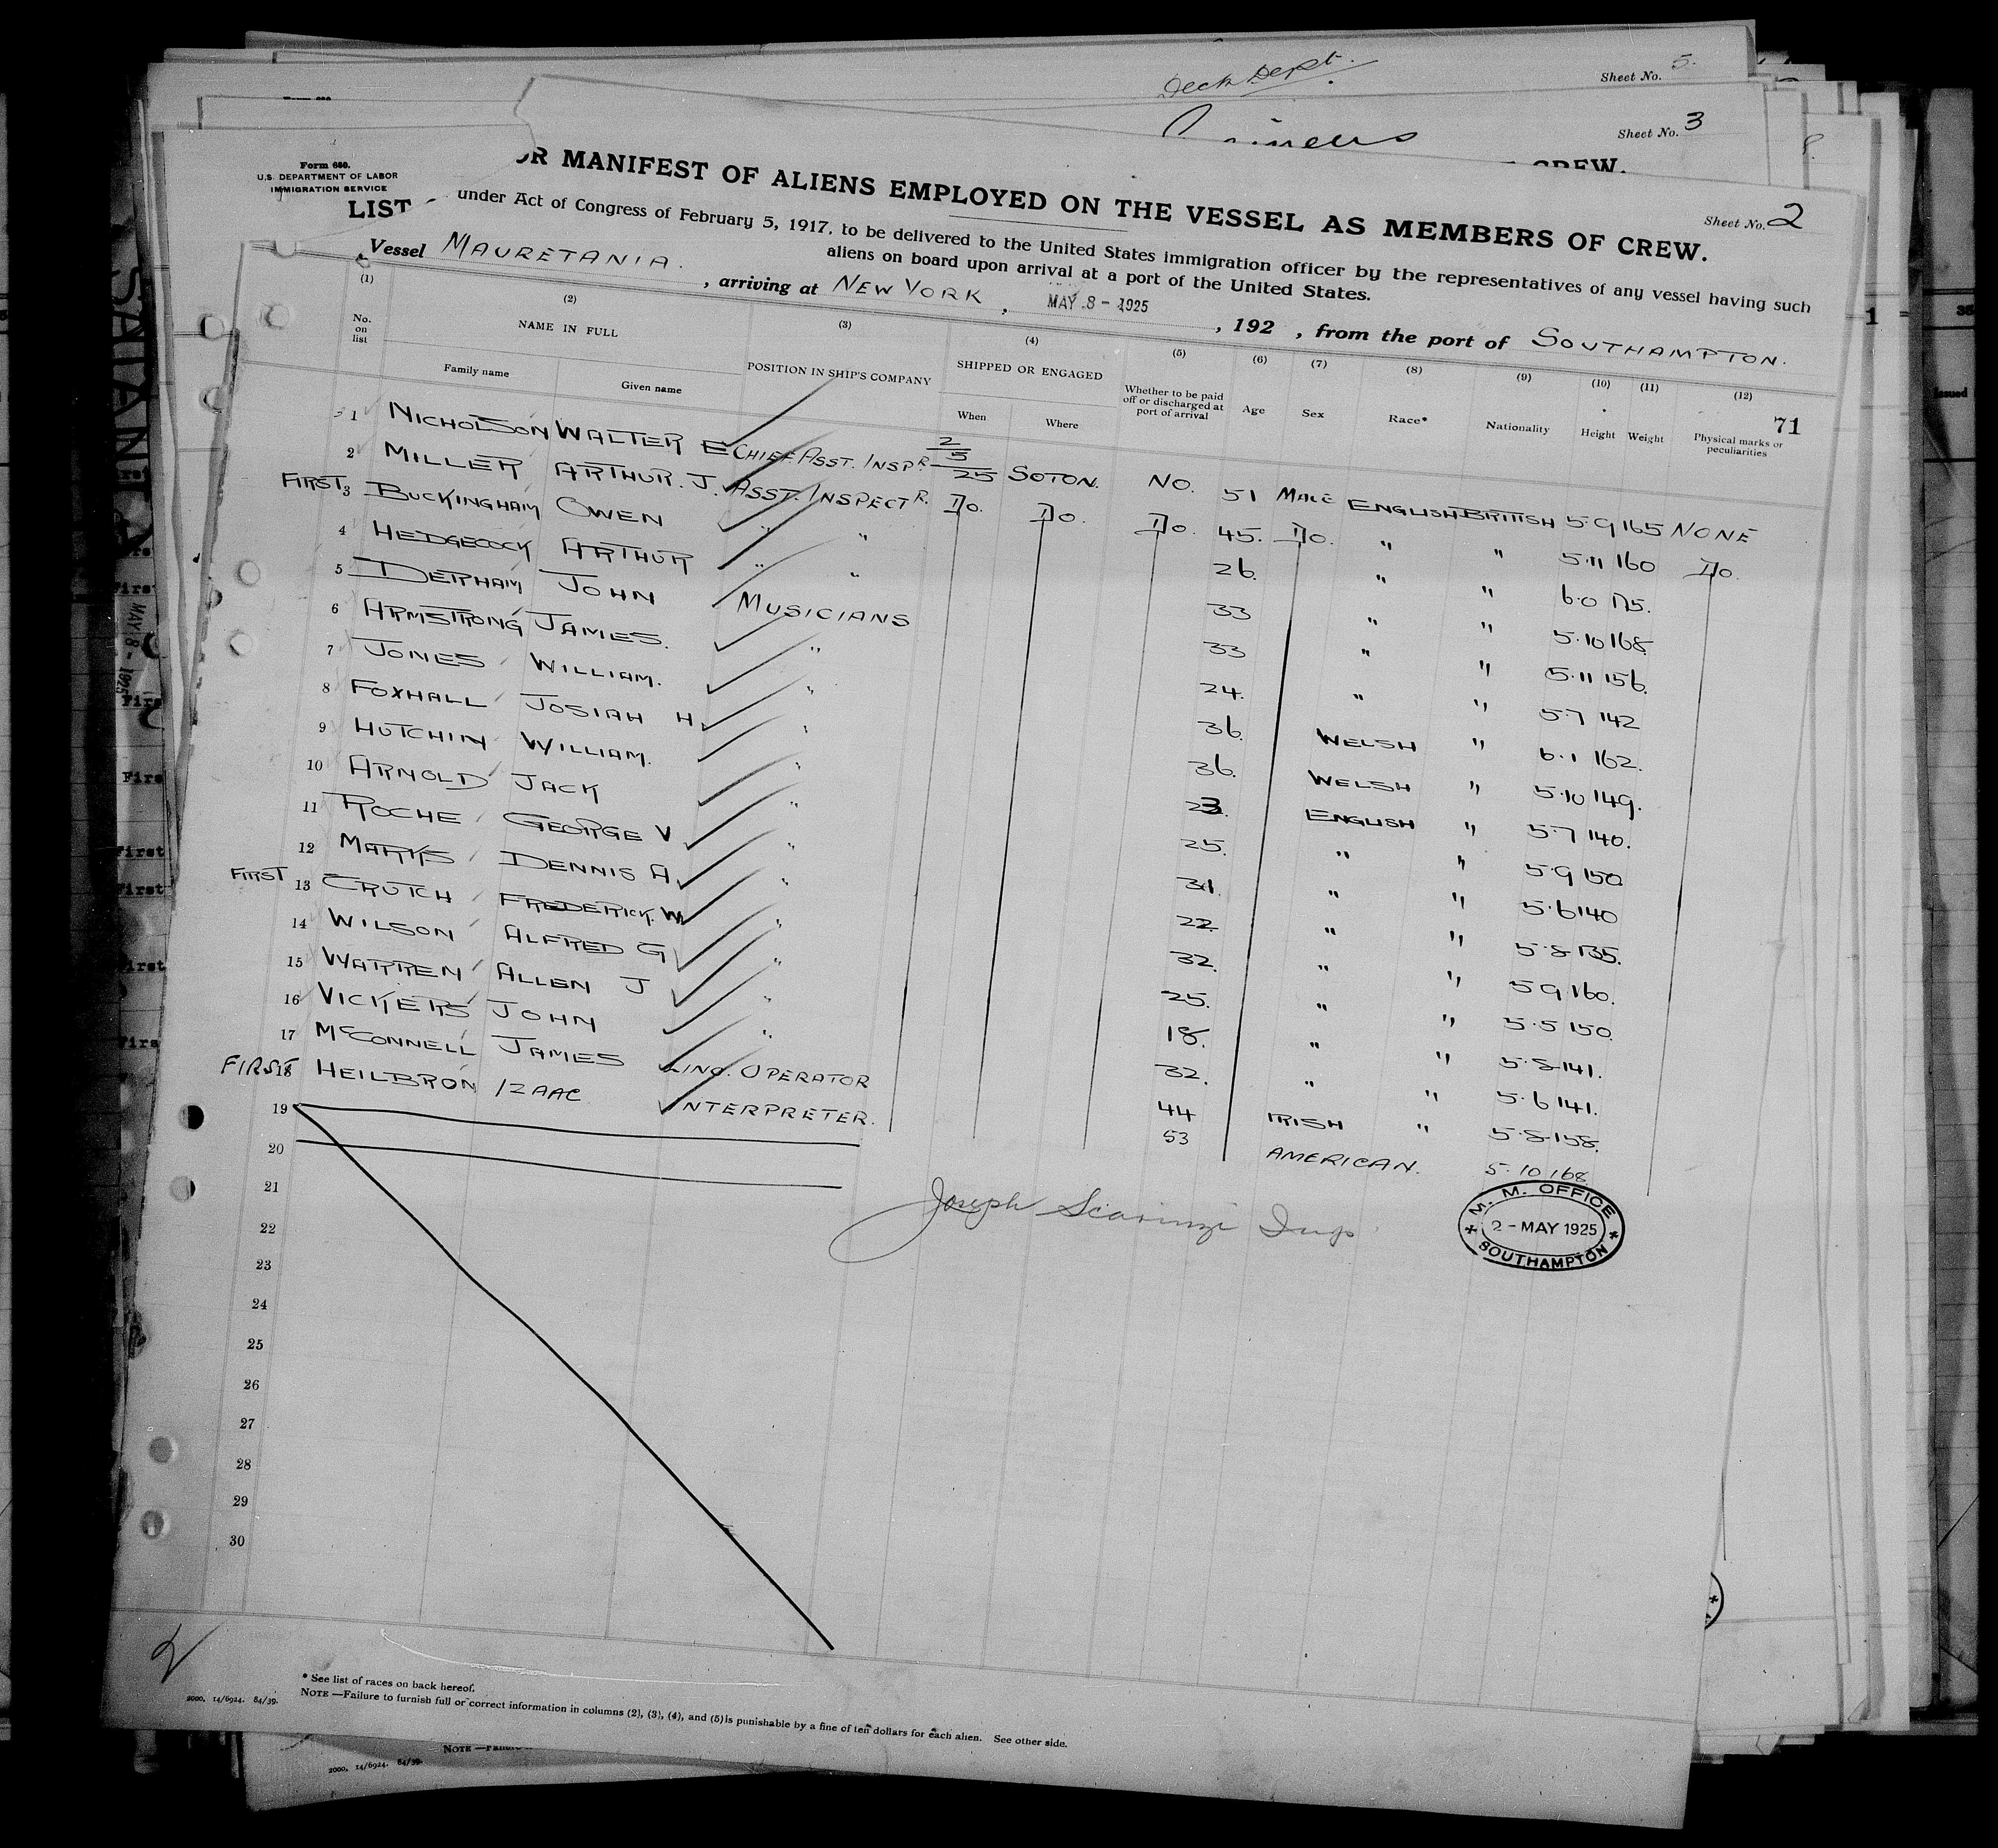 Deck Dept.
Sheet No. 5.
Sheet No. 3
CREW.
Form 680.
U.S. DEPARTMENT OF LABOR
IMMIGRATION SERVICE
Sheet No. 2
LIST OR MANIFEST OF ALIENS EMPLOYED ON THE VESSEL AS MEMBERS OF CREW.
under Act of Congress of February 5, 1917, to be delivered to the United States immigration officer by the representatives of any vessel having such
aliens on board upon arrival at a port of the United States.
Vessel MAURETANIA. , arriving at NEW YORK , MAY 8 - 1925 , 192 , from the port of SOUTHAMPTON.
(1) (2) (3) (4) (5) (6) (7) (8) (9) (10) (11) (12)
No. on list NAME IN FULL POSITION IN SHIP'S COMPANY SHIPPED OR ENGAGED Whether to be paid off or discharged at port of arrival Age Sex Race* Nationality Height Weight Physical marks or peculiarities 71
Family name Given name When Where
1 NICHOLSON WALTER E CHIEF ASST. INSPR 2/5/25 SOTON. NO. 51 MALE ENGLISH BRITISH 5.9 165 NONE
2 MILLER ARTHUR. J. ASST. INSPECTR. Do. Do. Do. 45. Do. " " 5.11 160 Do.
FIRST 3 BUCKINGHAM OWEN " " 26 " " 6.0 175.
4 HEDGECOCK ARTHUR " " 33 " " 5.10 168
5 DERHAM JOHN MUSICIANS 33 " " 5.11 156
6 ARMSTRONG JAMES. " 24. " " 5.7 142
7 JONES WILLIAM. " 36. WELSH " 6.1 162.
8 FOXHALL JOSIAH H. " 36. WELSH " 5.10 149.
9 HUTCHIN WILLIAM. " 23. ENGLISH " 5.7 140.
10 ARNOLD JACK " 25. " " 5.9 150
11 ROCHE GEORGE V " 31. " " 5.6 140
12 MARKS DENNIS A. " 22 " " 5.8 135.
FIRST 13 CRUTCH FREDERICK. W " 32. " " 5 9 160.
14 WILSON ALFRED G " 25. " " 5.5 150.
15 WARREN ALLEN J " 18. " " 5.8 141.
16 VICKERS JOHN " 32. " " 5.6 141.
17 McCONNELL JAMES LINO. OPERATOR 44 IRISH " 5.8 158.
FIRST 18 HEILBRON IZAAC INTERPRETER. 53 AMERICAN. 5.10 168
19
20
21
Joseph Scarinzi Insp
M. M. OFFICE
2 - MAY 1925
SOUTHAMPTON
22
23
24
25
26
27
28
29
30
2
* See list of races on back hereof.
NOTE —Failure to furnish full or correct information in columns (2), (3), (4), and (5) is punishable by a fine of ten dollars for each alien. See other side.
2000. 14/6924. 84/39.
2000. 14/6924. 84/39.